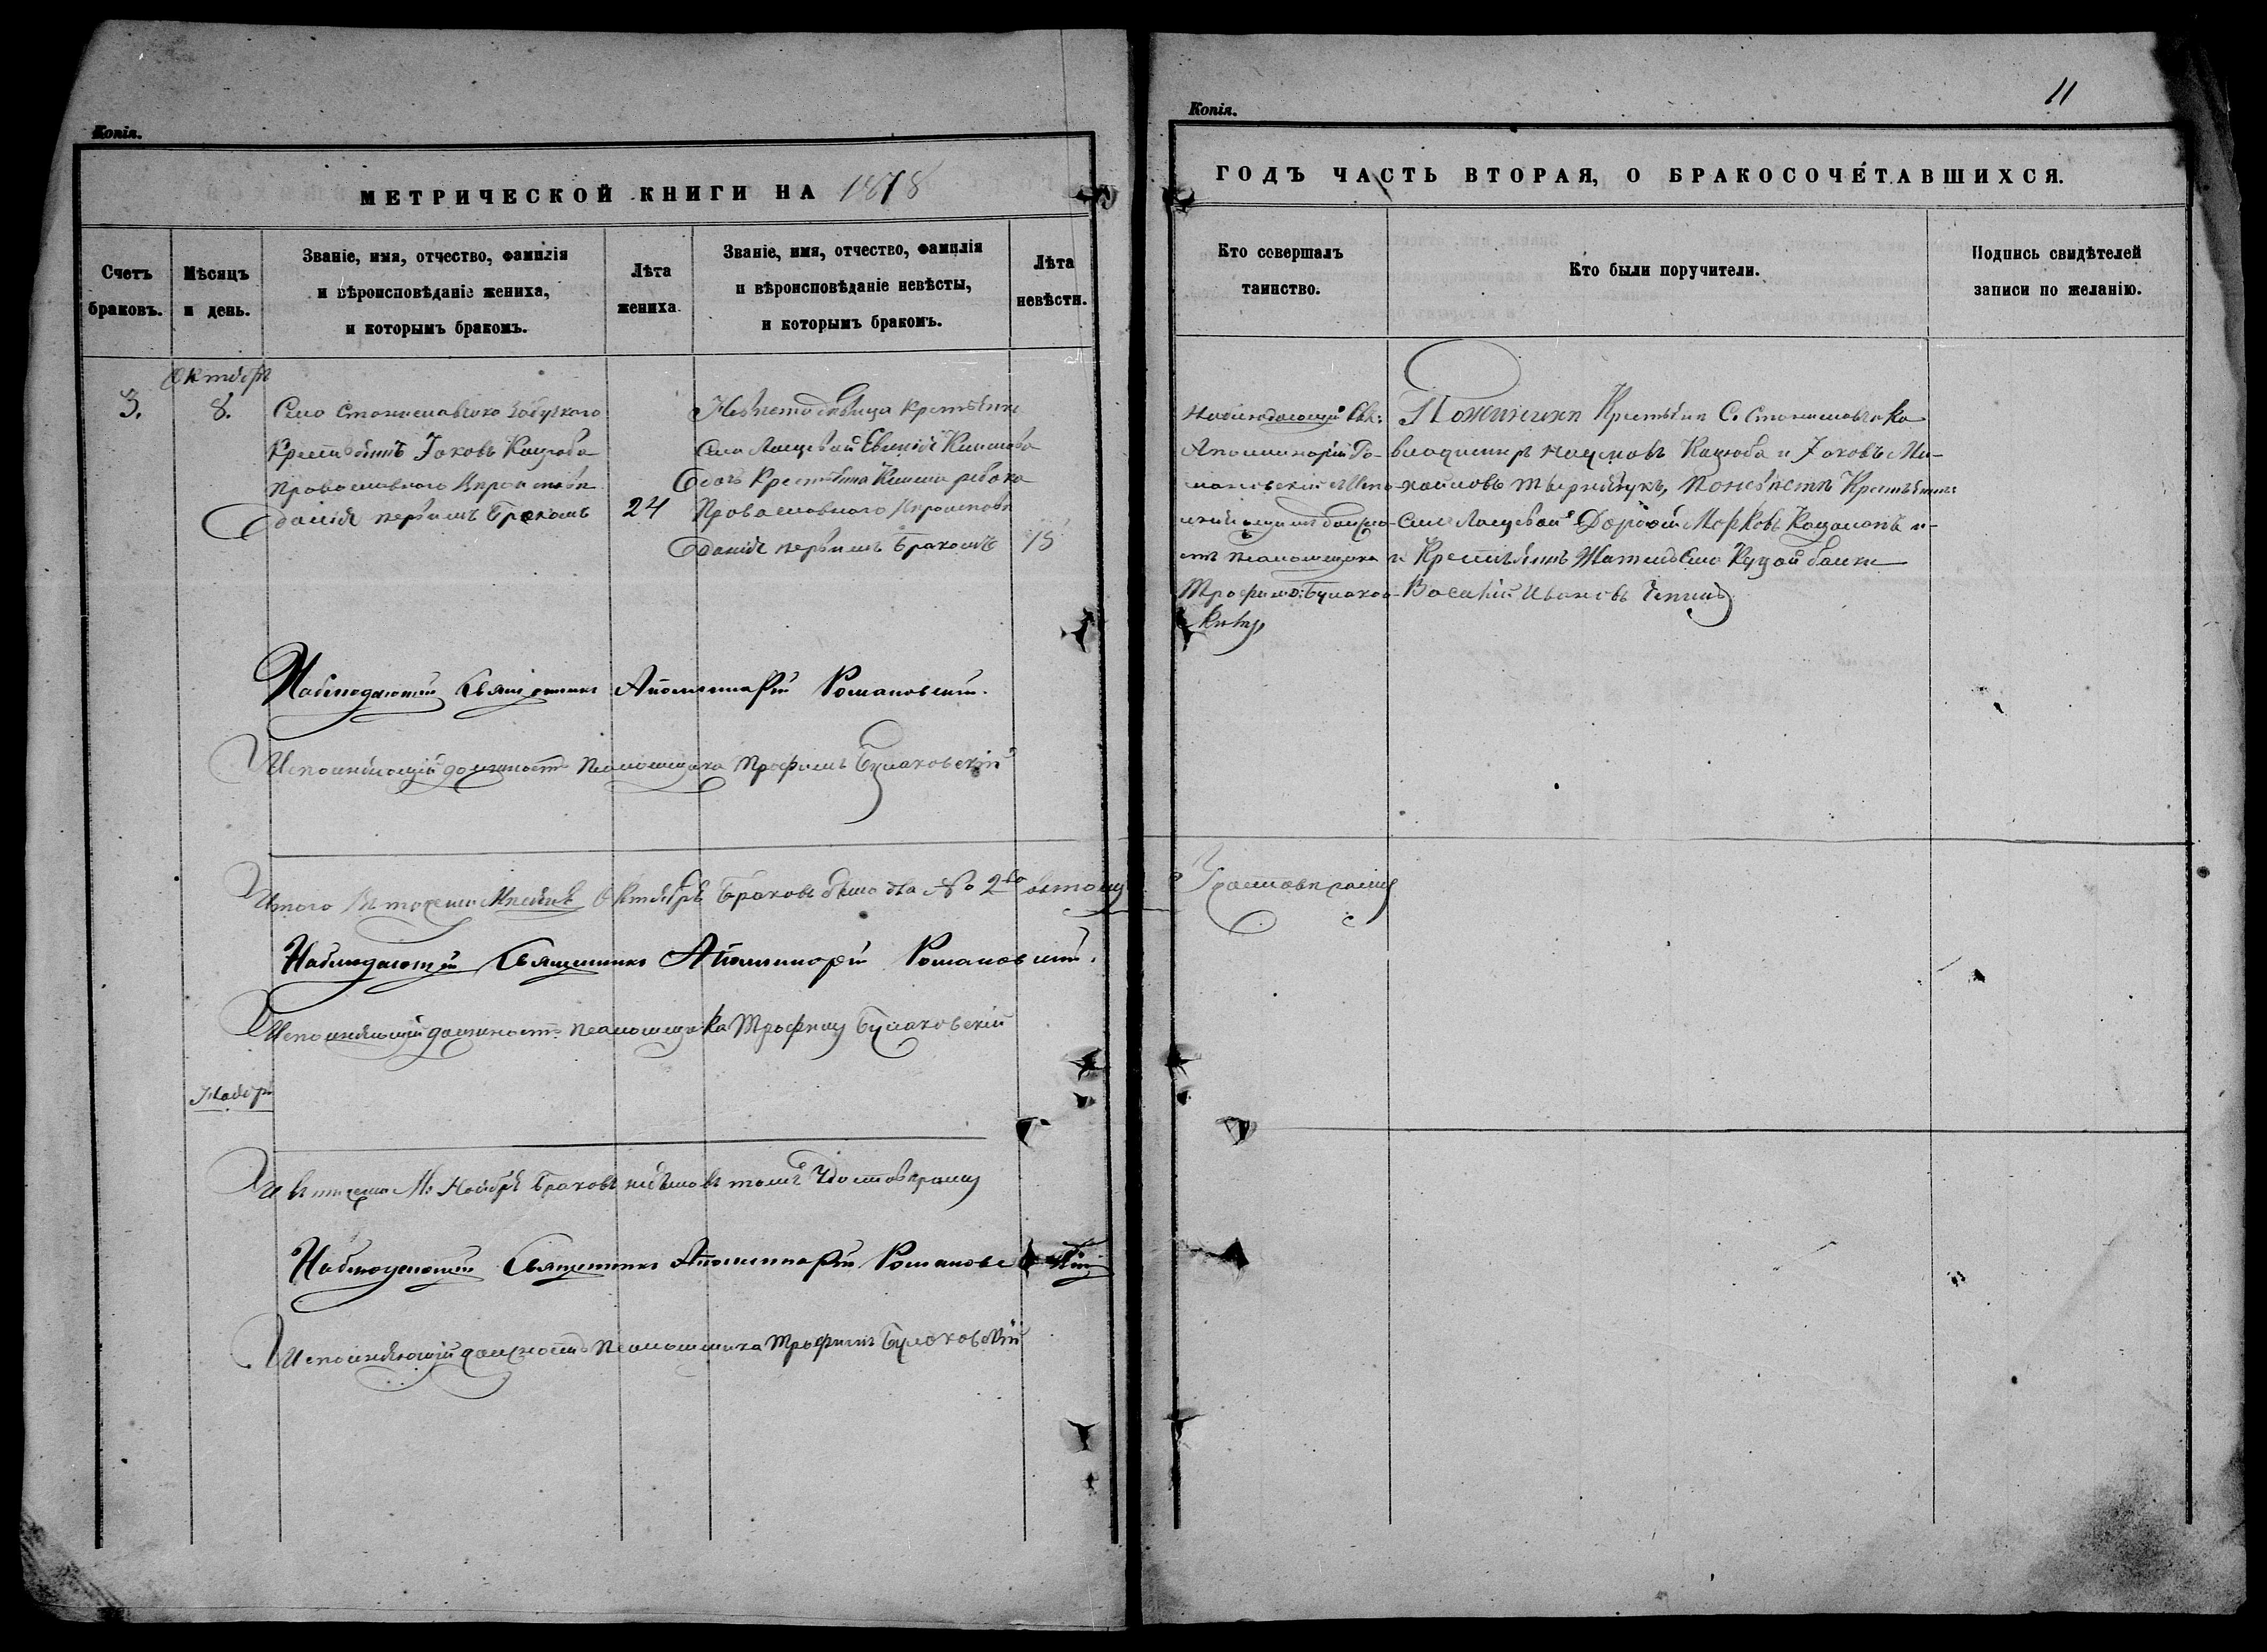 Копія.
МЕТРИЧЕСКОЙ КНИГИ НА 1878
Счетъ браковъ.
Мѣсяцъ и день.
Званіе, имя, отчество, фамилія
и вѣроисповѣданіе жениха,
и которымъ бракомъ.
Лѣта жениха.
Званіе, имя, отчество, фамилія
и вѣроисповѣданіе невѣсты,
и которымъ бракомъ.
Лѣта невѣсты.
Октябрь
3.
8.
Села Станиславчика
Крестьянинъ Іаковъ Кацюба
Православнаго Вѣроисповѣ
данія первымъ Бракомъ
24
Невѣста дѣвица Крестьянка
Села Лащевой Климова
дочь Крестьянина
Православнаго Вѣроисповѣ
данія первымъ Бракомъ
Наблюдающій Священникъ Аполлинарій Романовскій.
Исполняющій должность Псаломщика Трофимъ Булаховскій
Итого въ теченіи Мѣсяца Октября Браковъ было два № 2
Наблюдающій Священникъ Аполлинарій Романовскій.
Исполняющій должность Псаломщика Трофимъ Булаховскій
Ноябрь
въ теченіи М. Ноября Браковъ небыло въ томъ Удостовѣряемъ
Наблюдающій Священникъ Аполлинарій Романовскій
Исполняющій должность Псаломщика Трофимъ Булаховскій
11
Копія.
ГОДЪ ЧАСТЬ ВТОРАЯ, О БРАКОСОЧЕТАВШИХСЯ.
Кто совершалъ таинство.
Кто были поручители.
Подпись свидѣтелей
записи по желанію.
Наблюдающій Свя:
Аполлинарій Ро-
мановскій Испо-
лняющимъ должно-
сть псаломщика
Трофимо: Булахов-
скимъ
По женихѣ Крестьяне С. Станиславчика
Владимиръ Наумовъ Кацюба и Іаковъ Ми-
хайловъ По невѣстѣ Крестьянинъ
Села Лащевой Дорофей Марковъ и
и Крестьянинъ Житель Села Балки
Василій Ивановъ